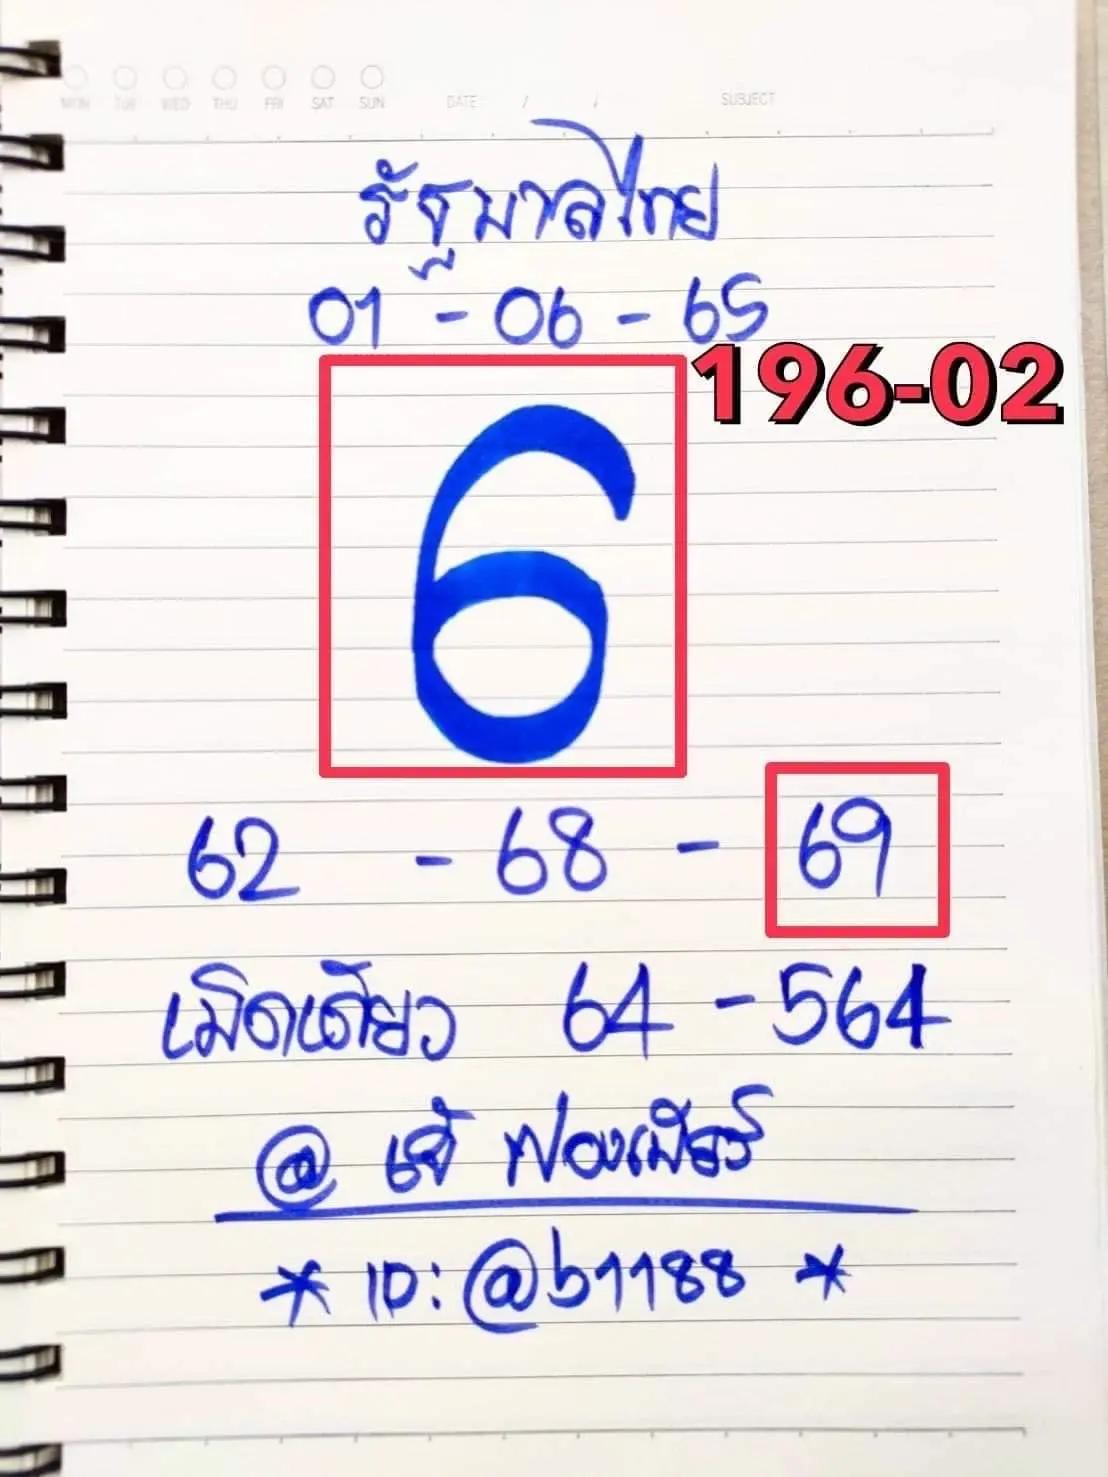 MON TUE WED THU FRI SAT SUN DATE / / SUBJECT
รัฐบาลไทย
01 - 06 - 65
196-02
6
62 - 68 - 69
เม็ดเดียว 64 - 564
@ เจ๊ ฟองเบียร์
* ID: @b1188 *